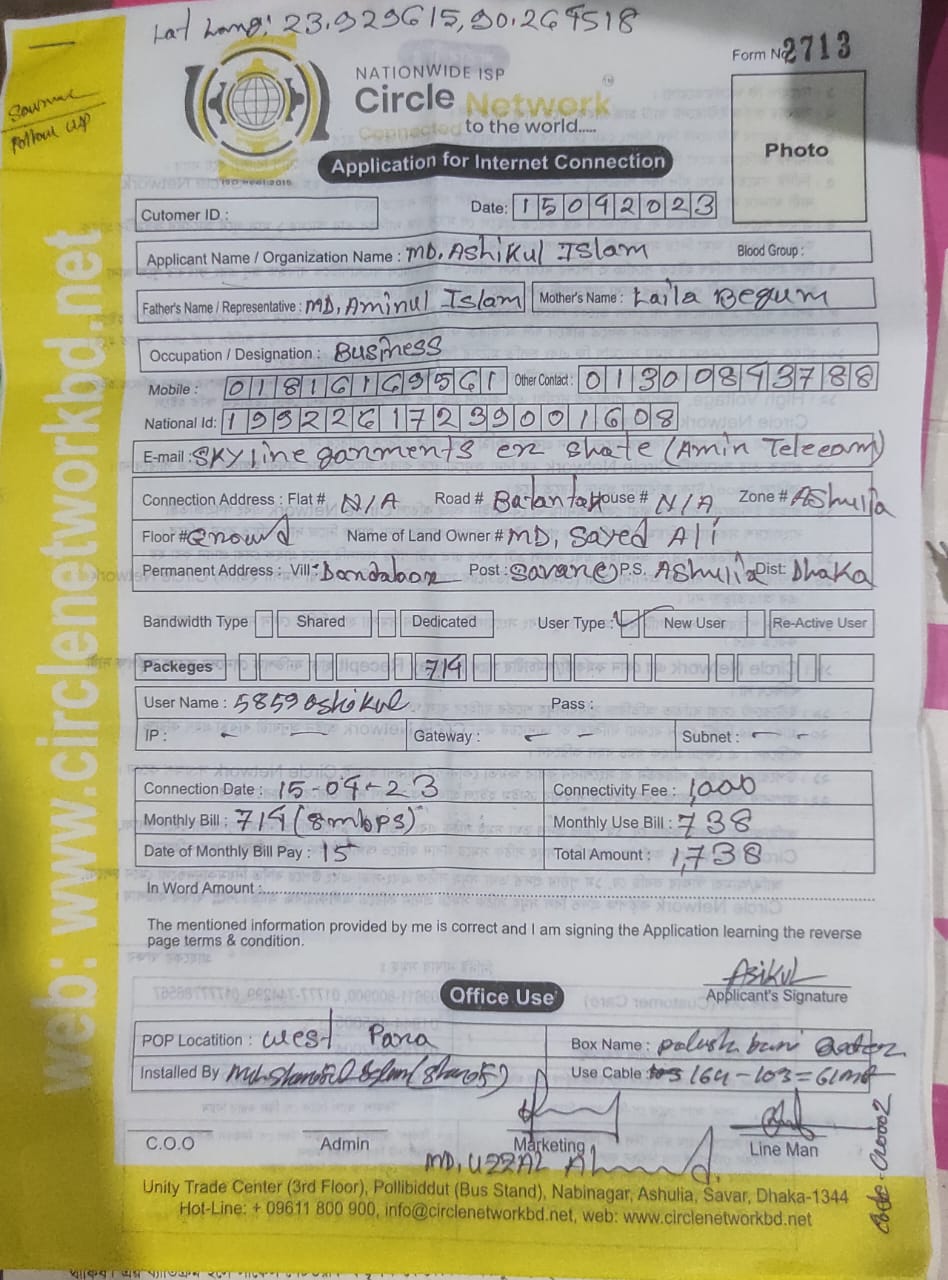 Lat Long: 23.929615,90.269518
Form No 2713
NATIONWIDE ISP
Circle Network
Connected to the world.....
Photo
Application for Internet Connection
ISO 9001:2015
Follow up
web: www.circlenetworkbd.net
Cutomer ID : Date: 15092023
Applicant Name / Organization Name : MD. Ashikul Islam Blood Group :
Father's Name / Representative : MD. Aminul Islam Mother's Name : Laila Begum
Occupation / Designation : Business
Mobile : 01816169561 Other Contact : 01300893788
National Id: 19922617239001608
E-mail : SKYline garments er shate (Amin Telecam)
Connection Address : Flat # N/A Road # House # N/A Zone # Ashulia
Floor # Name of Land Owner # MD, Sayed Ali
Permanent Address : Vill- Post : Savar P.S. Ashulia Dist: Dhaka
Bandwidth Type Shared Dedicated User Type : New User Re-Active User
Packeges 714
User Name : 5859ashikul Pass :
IP : - - Gateway : - - Subnet : - -
Connection Date : 15-09-23 Connectivity Fee : 1,000
Monthly Bill : 714 (8mbps) Monthly Use Bill : 738
Date of Monthly Bill Pay : 15 Total Amount : 1,738
In Word Amount :
The mentioned information provided by me is correct and I am signing the Application learning the reverse
page terms & condition.
Asikul
Applicant's Signature
Office Use
POP Locatition : West Para Box Name : palash bari
Installed By Use Cable 164-103=61
C.O.O Admin Marketing Line Man
MD. UZZAL Ahmed.
Unity Trade Center (3rd Floor), Pollibiddut (Bus Stand), Nabinagar, Ashulia, Savar, Dhaka-1344
Hot-Line: + 09611 800 900, info@circlenetworkbd.net, web: www.circlenetworkbd.net